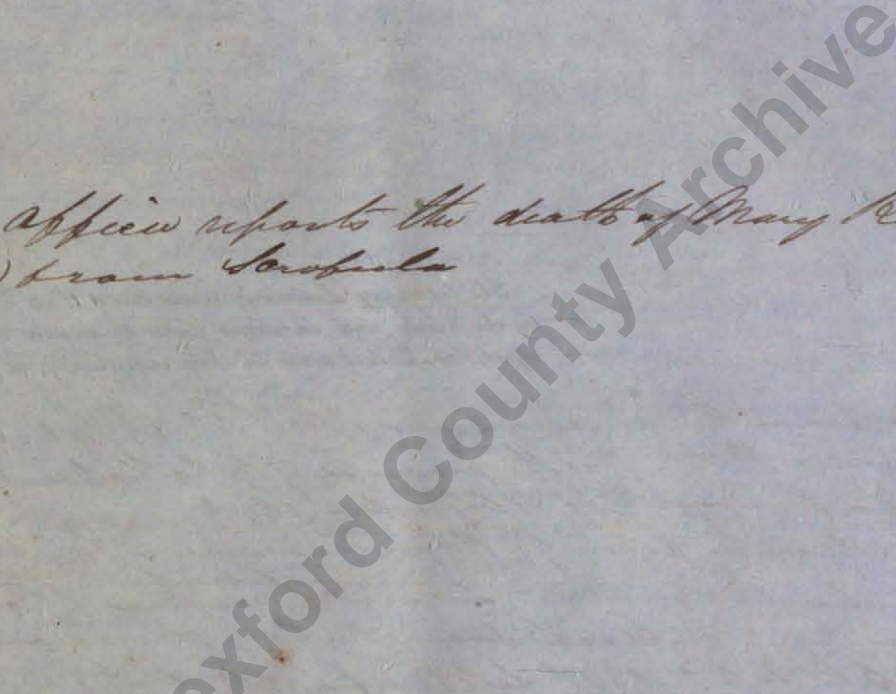 Officer reports the death of Mary R
) from Scrofula
exford County Archive